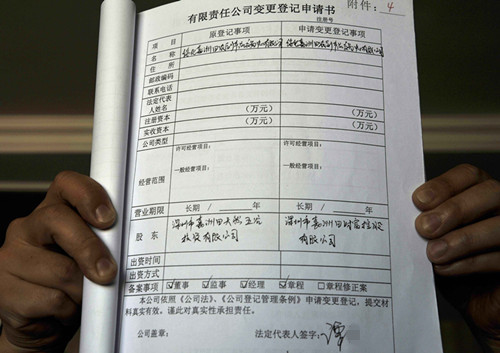 有限责任公司变更登记申请书
附件：4
注册号
项目 原登记事项 申请变更登记事项
名称
住所
邮政编码
联系电话
法定代表人姓名
注册资本 （万元） （万元）
实收资本 （万元） （万元）
公司类型
经营范围 许可经营项目： 许可经营项目：
一般经营项目： 一般经营项目：
营业期限 长期 / 年 长期 / 年
股东 深圳市嘉洲田 深圳市嘉洲田财富控股
投资有限公司 有限公司
出资时间
出资方式
备案事项 ☑董事 ☑监事 ☑经理 ☑章程 □章程修正案
本公司依照《公司法》、《公司登记管理条例》申请变更登记，提交材料真实有效。谨此对真实性承担责任。
公司盖章： 法定代表人签字：